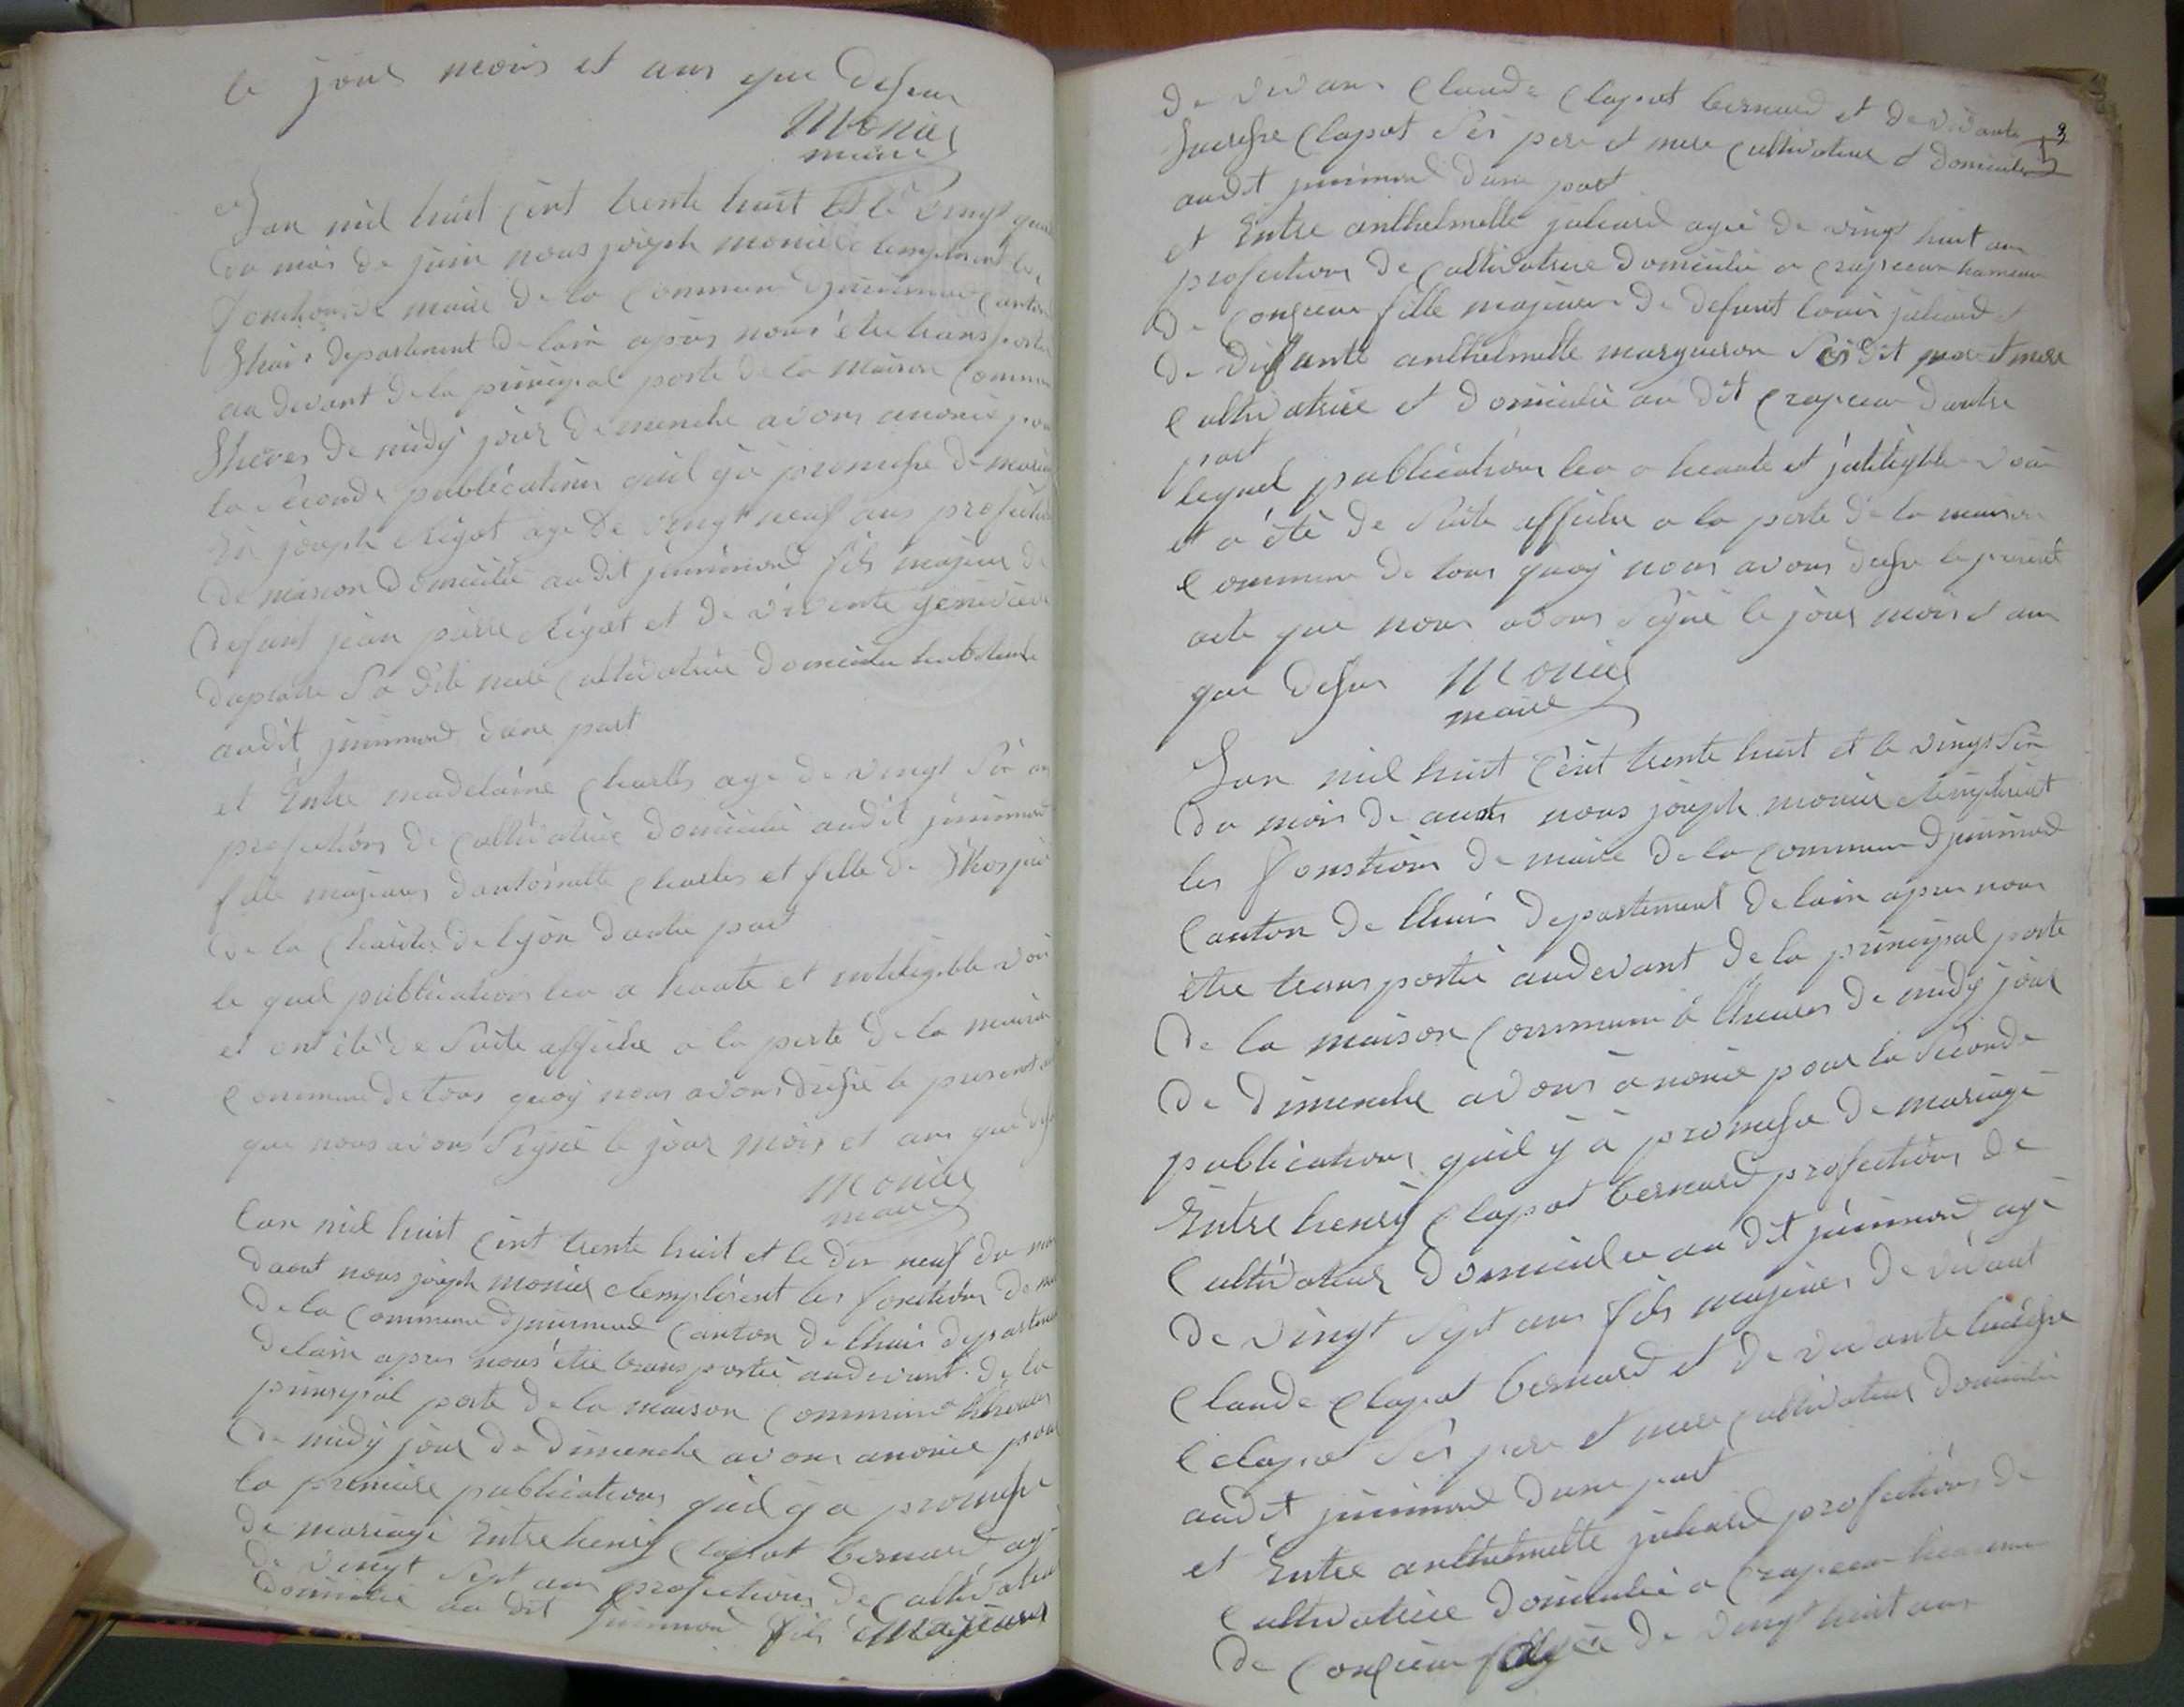 le jour mois et ans que desus
Monier
maire
Lan mil huit cent trente huit et le vingt quat
du mois de juin nous joseph monier remplisent les
fonctions de maire de la commune djzimmed canton
departement de lain apres nous être transporter
au devant de la principal porte de la maison commune
lheures de midy jour de dimenche avons anoncé pour
la seconde publication quil y a promesse de mariage
joseph Rigot age de vingt neuf ans profection
de masson domicilié audit fils majeur de
defunt jean pierre Rigot et de vivente genevieve
sa dite mere cultivatrice domicilié
audit d'une part
et Entre madelaine charles age de vingt six ans
profections de cultivatrice domicilié audit
fille majeure dantoinette charles et fille de lhospice
de la charité de lyon dautre part
le quel publication leu a haute et inteligible voix
et ont été de suite affiche a la porte de la maison
commune de tous quoy nous avons dressé le present
que nous avons signé le jour mois et ans que desus
Monier
maire
lan mil huit cent trente huit et le dix neuf du mois
daout nous joseph monier remplisent les fonctions de maire
de la commune canton de lhuis departement
delain apres nous être transporté audevant de la
principal porte de la maison commune a lheures
de midy jour de dimenche avons anoncé pour
la premiere publications quil y a promesse
de mariage Entre henry clapot bernard agé
de vingt sept ans profections de cultivateur
domicilié au dit fils majeur
de vivans Claude clapot bernard et de vivante
Lucresse clapot ses pere et mere cultivateur et domicilié
audit dune part
et Entre anthelmette juliard agée de vingt huit ans
profections de cultivatrice domicilié a crapeau hameau
de conzieu fille majeure de defunt louis juliard et
de diffunte anthelmette marguiron ses dit pere et mere
cultivatrice et domicilié au dit crapeau dautre
part
lequel publication leu a haute et inteligible voix
et a été de suite affiche a la porte de la maison
commune de tous quoy nous avons dressé le present
acte que nous avons signé le jour mois et ans
que desus Monier
maire
Lan mil huit cent trente huit et le vingt six
du mois de aoust nous joseph monier remplisent
les fonctions de maire de la commune
canton de lhuis departement de lain apres nous
être transporté audevant de la principal porte
de la maison commune à lheures de midy jour
de dimenche avons anoncé pour la seconde
publications quil y à promesse de mariage
Entre henry clapot bernard profections de
cultivateur domicilie au dit agé
de vingt sept ans fils majeur de vivant
Claude clapot bernard et de vivante lucresse
clapot ses pere et mere cultivateur domicilié
audit dune part
et Entre anthelmette juliard profections de
cultivatrice domicilié a Crapeau hameau
de conzieu agée de vingt huit ans